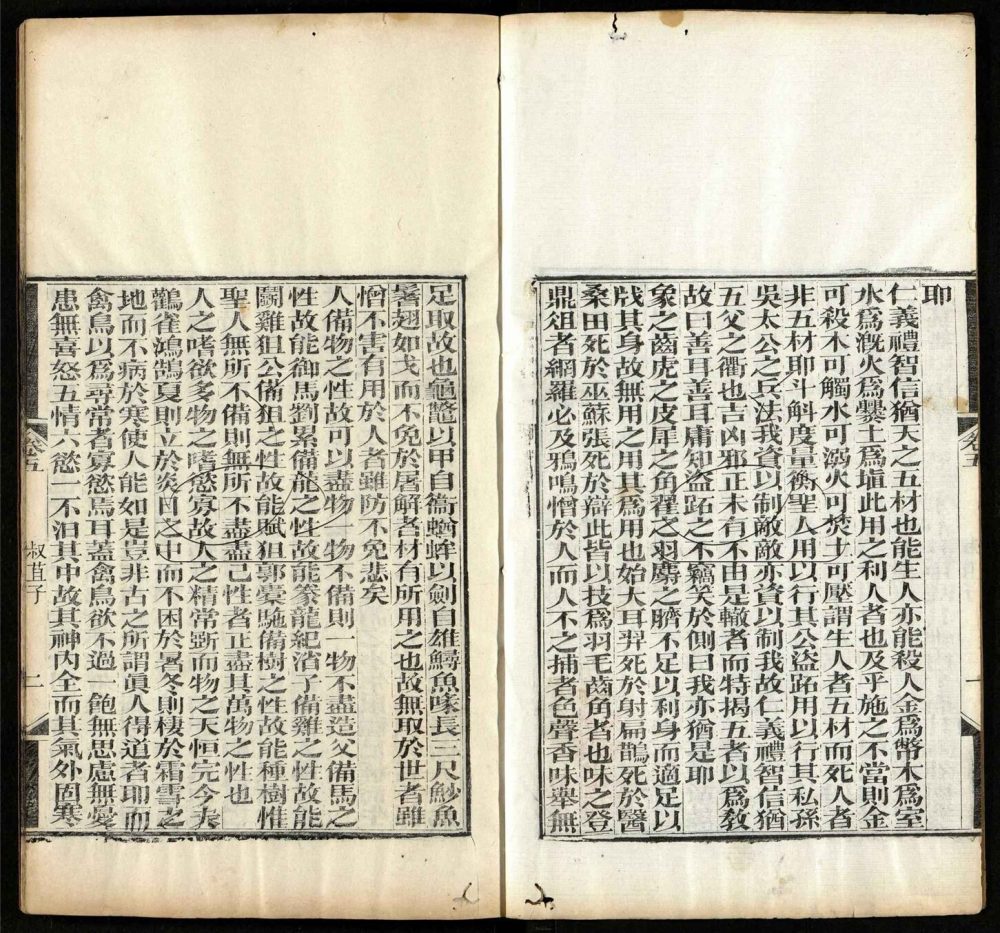 耶
仁義禮智信猶天之五材也能生人亦能殺人金爲幣木爲室
水爲溉火爲爨土爲塡此用之利人者也及乎施之不當則金
可殺木可觸水可溺火可焚土可壓謂生人者五材而死人者
非五材耶斗斛度量衡聖人用以行其公盜跖用以行其私孫
吳太公之兵法我資以制敵敵亦資以制我故仁義禮智信猶
五父之衢也吉凶邪正未有不由是轍者而特揭五者以爲敎
故曰善耳善耳庸知盜跖之不竊笑於側曰我亦猶是耶
象之齒虎之皮犀之角翟之羽麝之臍不足以利身而適足以
戕其身故無用之用其爲用也始大耳羿死於射扁鵲死於醫
桑田死於巫蘇張死於辯此皆以技爲羽毛齒角者也味之登
鼎俎者網羅必及鴉鳴憎於人而人不之捕者色聲香味舉無
足取故也龜鼈以甲自衞蝤蛑以劍自雄鱘魚喙長三尺魦魚
暑翅如戈而不免於屠解者材有所用之也故無取於世者雖
憎不害有用於人者雖防不免悲矣
人備物之性故可以盡物一物不備則一物不盡造父備馬之
性故能御馬劉累備龍之性故能豢龍紀渻子備雞之性故能
鬬雞狙公備狙之性故能賦狙郭橐駞備樹之性故能種樹惟
聖人無所不備則無所不盡盡己性者正盡其萬物之性也
人之嗜欲多物之嗜慾寡故人之精常斲而物之天恒完今夫
鸛雀鴻鵠夏則立於炎日之中而不困於暑冬則棲於霜雪之
地而不病於寒使人能如是豈非古之所謂眞人得道者耶而
禽鳥以爲尋常者寡慾焉耳蓋禽鳥欲不過一飽無思慮無憂
患無喜怒五情六慾一不汩其中故其神內全而其氣外固寒
卷五
叔苴子
二